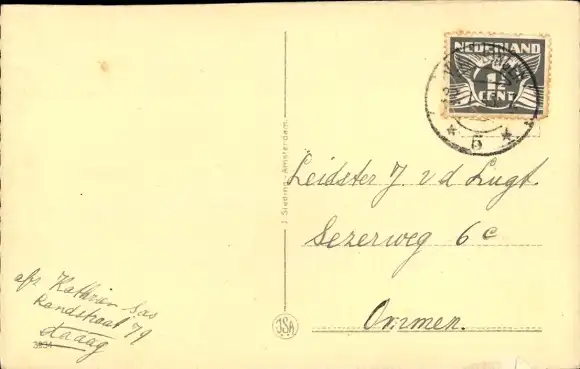 NEDERLAND
1½
CENT
5
J. Sleding, Amsterdam.
Leidster J. v d Lugt.
Sezerweg 6c
Ommen.
afz Kathrien Sas
Randstraat 79
Haaag
3934
JSA